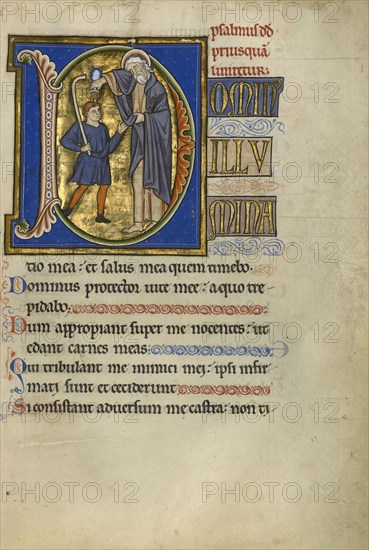 psalmus dd
priusquā
liniretur:
D
OMIN
ILLV
MINA
tio mea: et salus mea quem timebo.
Dominus protector uite mee: a quo tre
pidabo:
Dum appropiant super me nocentes: ut
edant carnes meas:
Qui tribulant me inimici mei: ipsi infir
mati sunt et ceciderunt
Si consistant aduersum me castra: non ti
PHOTO 12